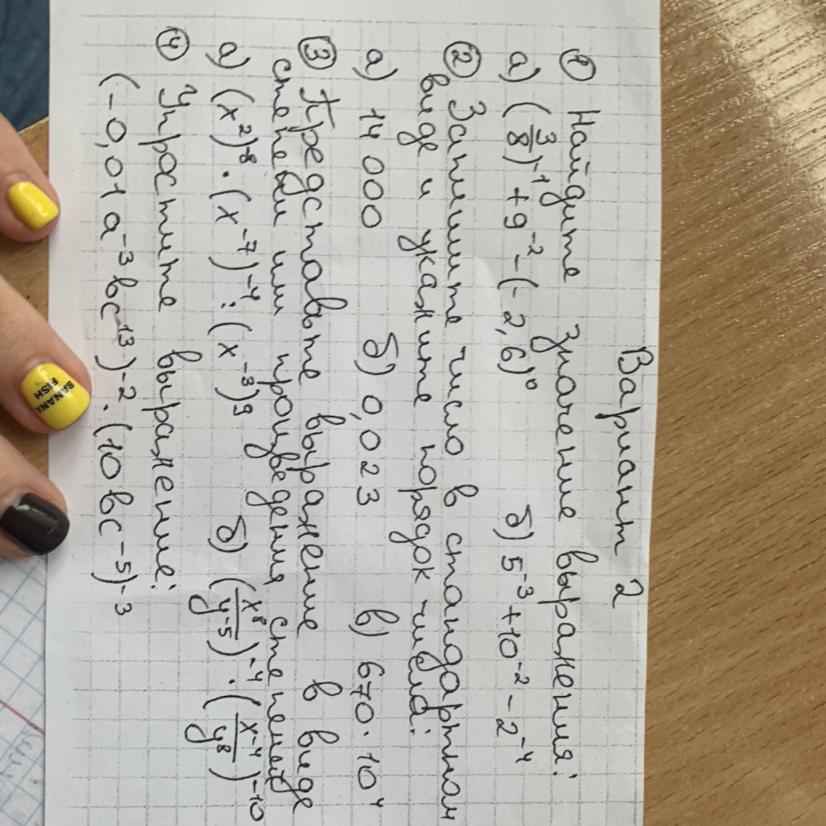 Вариант 2
① Найдите значение выражения:
а) (3/8)⁻¹ + 9⁻² - (-2,6)⁰ б) 5⁻³ + 10⁻² - 2⁻⁴
② Запишите число в стандартном
виде и укажите порядок числа:
а) 14 000 б) 0,023 в) 670 · 10⁴
③ Представьте выражение в виде
степени или произведения степеней
а) (x²)⁻⁸ · (x⁻⁷)⁻⁴ : (x⁻³)⁹ б) (x⁸/y⁻⁵)⁻⁴ · (x⁻⁴/y⁸)⁻¹⁰
④ Упростите выражение:
(-0,01a⁻³bc¹³)⁻² · (10bc⁻⁵)⁻³
BANANA
FISH